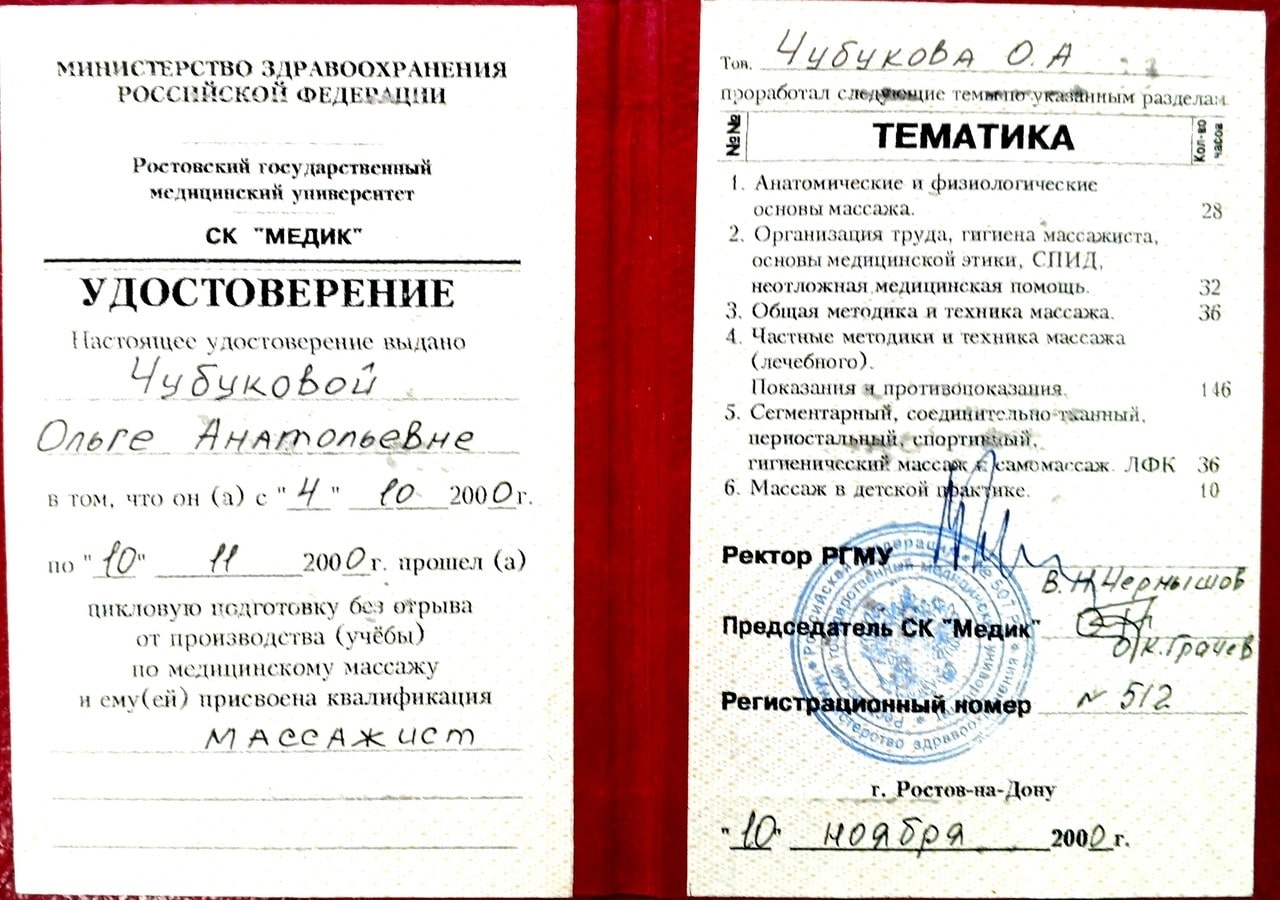 МИНИСТЕРСТВО ЗДРАВООХРАНЕНИЯ
РОССИЙСКОЙ ФЕДЕРАЦИИ
Ростовский государственный
медицинский университет
СК "МЕДИК"
УДОСТОВЕРЕНИЕ
Настоящее удостоверение выдано
Чубуковой
Ольге Анатольевне
в том, что он (а) с "4" 10 2000г.
по "10" 11 2000г. прошел (а)
цикловую подготовку без отрыва
от производства (учёбы)
по медицинскому массажу
и ему(ей) присвоена квалификация
массажист
Тов. Чубукова О.А
проработал следующие темы по указанным разделам
№№ ТЕМАТИКА Кол-во часов
1. Анатомические и физиологические
основы массажа. 28
2. Организация труда, гигиена массажиста,
основы медицинской этики, СПИД,
неотложная медицинская помощь. 32
3. Общая методика и техника массажа. 36
4. Частные методики и техника массажа
(лечебного).
Показания и противопоказания. 146
5. Сегментарный, соединительно-тканный,
периостальный, спортивный,
гигиенический массаж и самомассаж. ЛФК 36
6. Массаж в детской практике. 10
Ректор РГМУ
В.Н.Чернышов
Председатель СК "Медик"
О.К.Грачев
Регистрационный номер № 512
г. Ростов-на-Дону
"10" ноября 2000г.